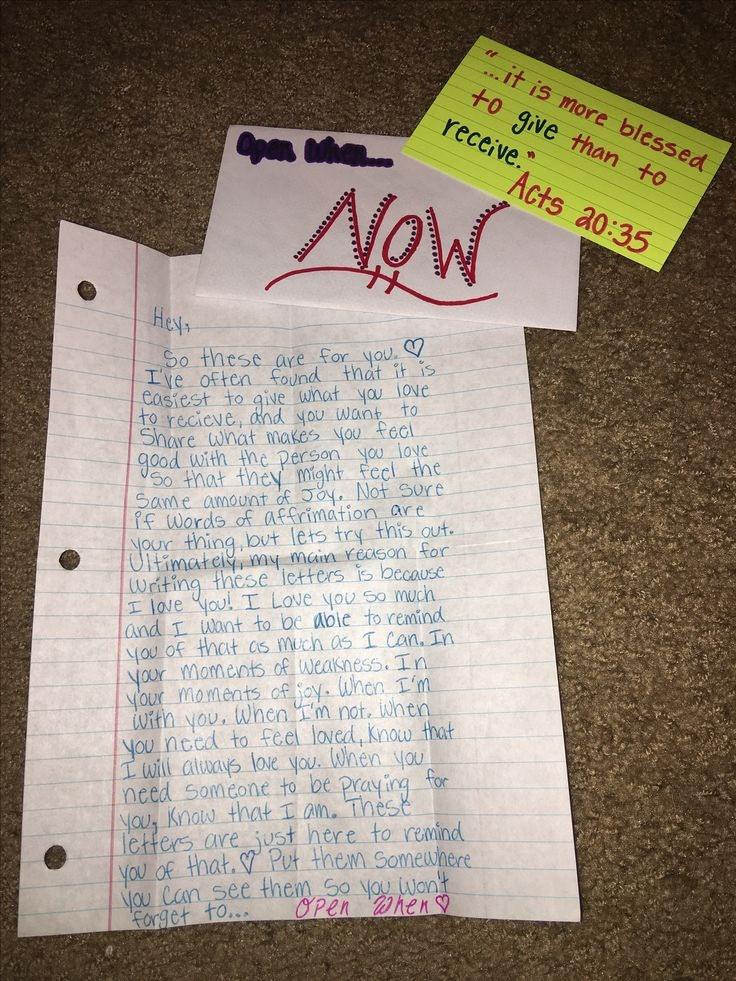 "...it is more blessed
to give than to
receive."
Acts 20:35
Open When....
NOW
Hey,
So these are for you.♡
I've often found that it is
easiest to give what you love
to recieve, and you want to
Share what makes you feel
good with the person you love
So that they might feel the
same amount of Joy. Not sure
if words of affrimation are
your thing, but lets try this out.
Ultimately, my main reason for
writing these letters is because
I love you! I Love you so much
and I want to be able to remind
you of that as much as I can. In
your moments of weakness. In
your moments of joy. When I'm
with you. When I'm not. When
you need to feel loved, know that
I will always love you. When you
need someone to be praying for
you, Know that I am. These
letters are just here to remind
you of that.♡ Put them somewhere
you can see them so you won't
forget to... Open When♡